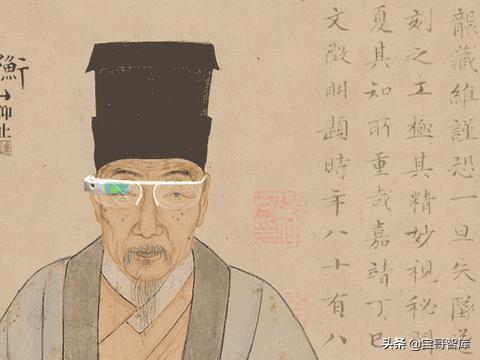 龍藏維謹恐一旦失墜
刻之工極其精妙視秘閣
夏其知所重哉嘉靖丁巳
文徵明題時年八十有八
衡山仰止
头条 @宝哥智库